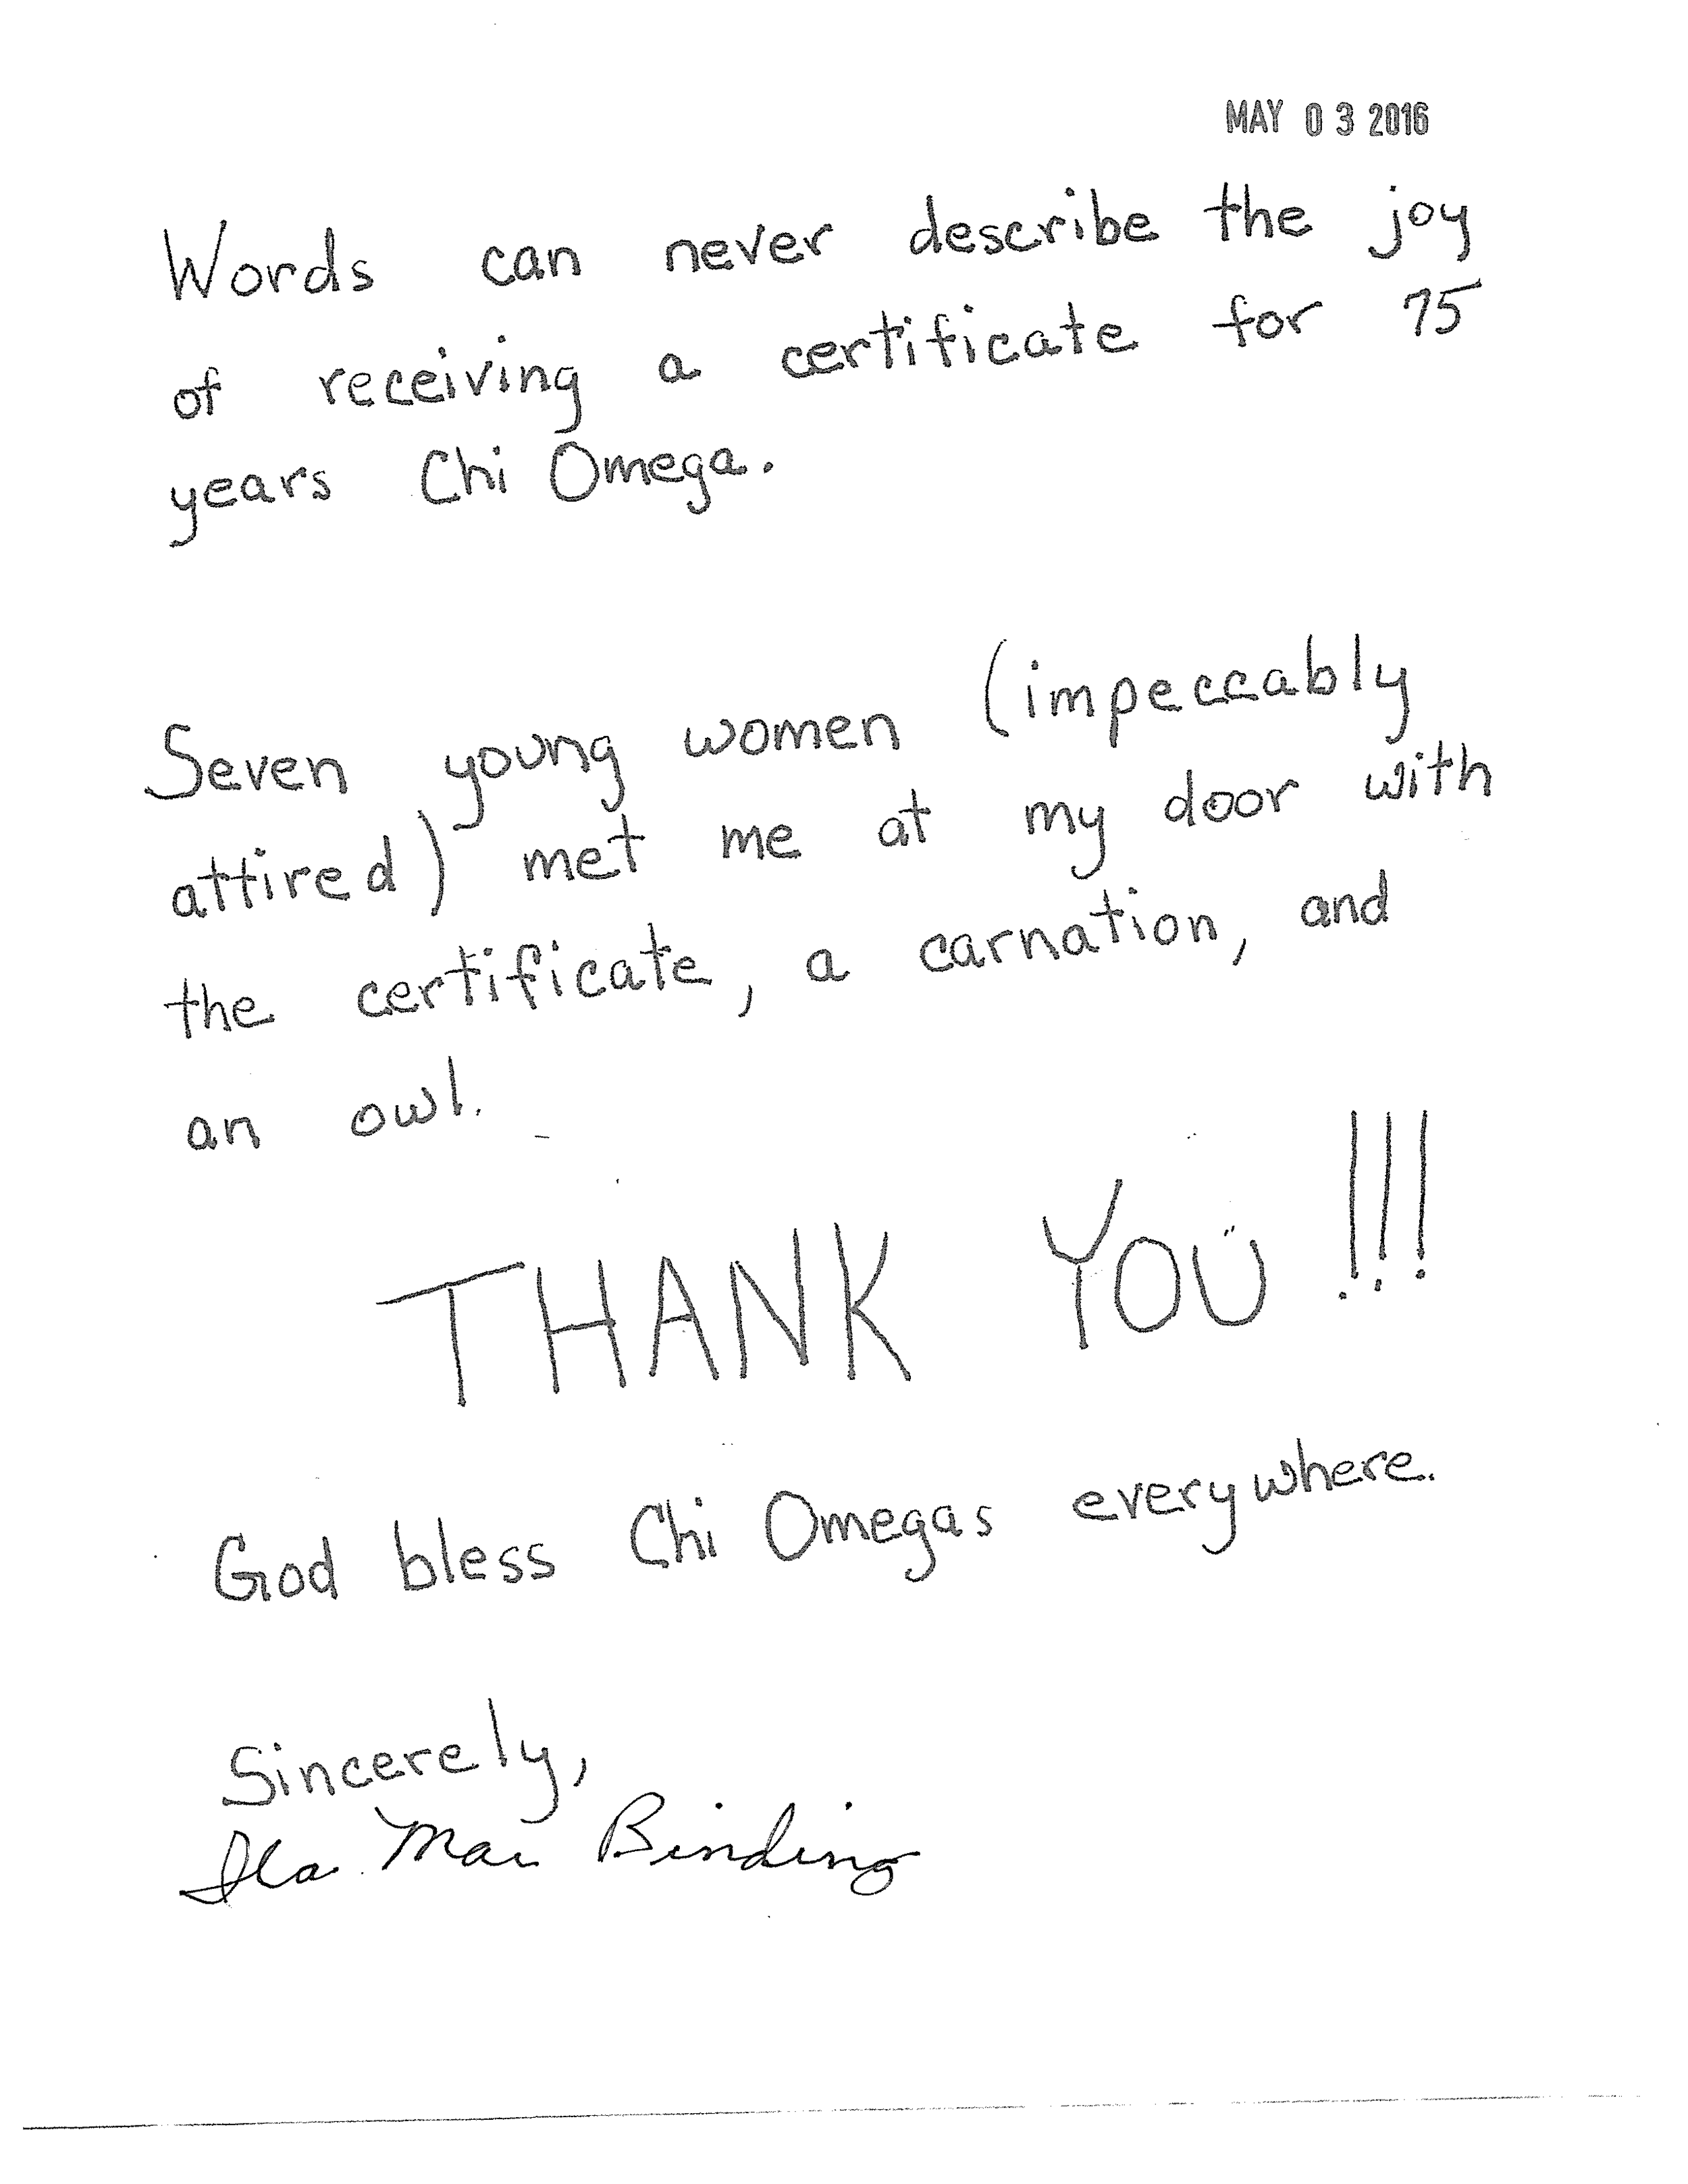 MAY 03 2016
Words can never describe the joy
of receiving a certificate for 75
years Chi Omega.
Seven young women (impeccably
attired) met me at my door with
the certificate, a carnation, and
an owl.
THANK YOU!!!
God bless Chi Omegas everywhere.
Sincerely,
Ila Mae Binding